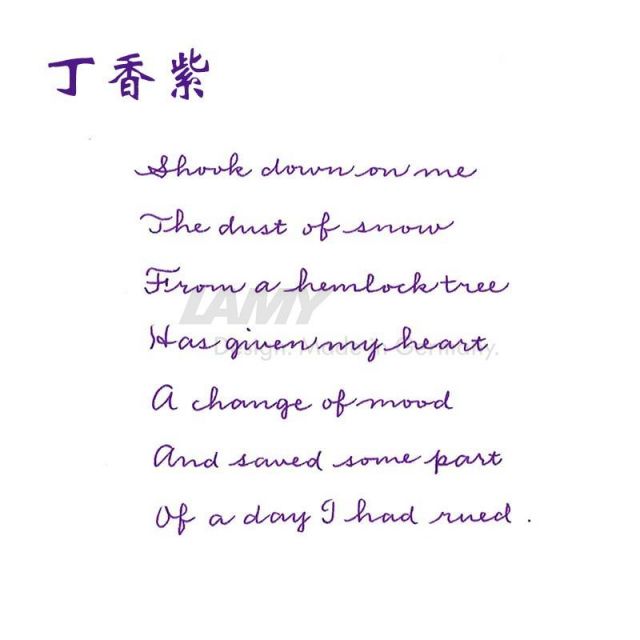 丁香紫
Shook down on me
The dust of snow
From a hemlock tree
LAMY
Has given my heart
Design. Made in Germany.
A change of mood
And saved some part
Of a day I had rued.